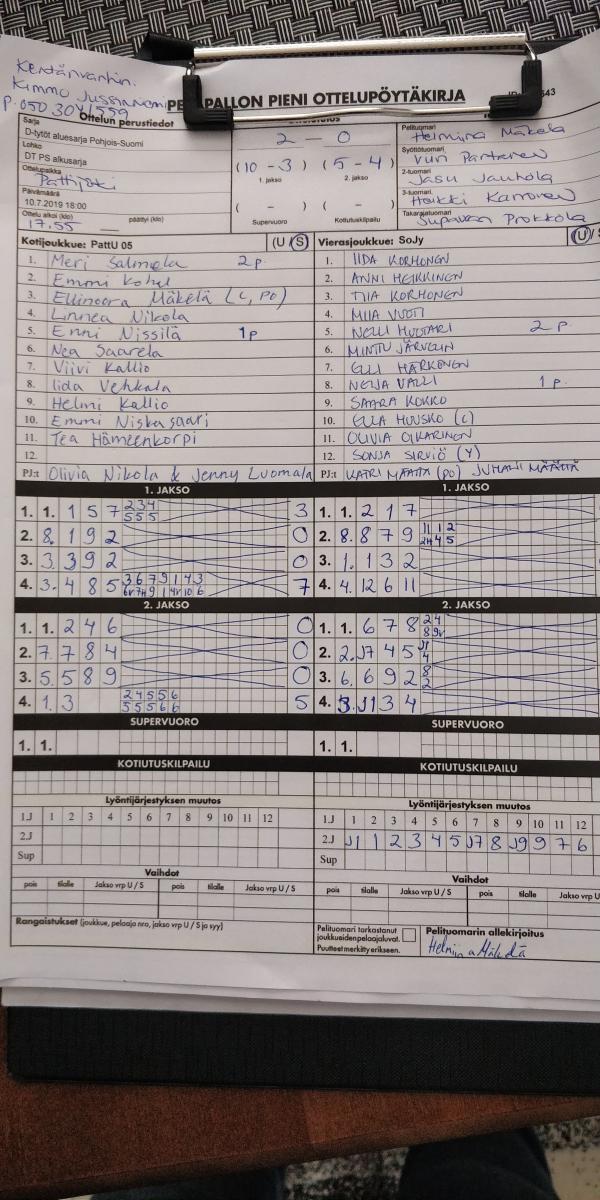 Kentänvanhin.
Kimmo Jussinniemi
P. 050 3041559
PALLON PIENI OTTELUPÖYTÄKIRJA
643
Ottelun perustiedot
Sarja
D-tytöt aluesarja Pohjois-Suomi
Lohko
DT PS alkusarja
Ottelupaikka
Pattijoki
Päivämäärä
10.7.2019 18:00
Ottelu alkoi (klo) päättyi (klo)
17.55
2 — 0
(10 - 3) (5 - 4)
1. jakso 2. jakso
( - ) ( - )
Supervuoro Kotiutuskilpailu
Pelituomari
Helmiina Mäkelä
Syöttötuomari
Partanen
2-tuomari
Jasu Jauhola
3-tuomari
Heikki Karvonen
Takarajatuomari
Prokkola
Kotijoukkue: PattU 05 (U / S)
1. Meri Salmela 2p
2. Emmi
3. Ellinoora Mäkelä (C, PO)
4. Linnea Nikola
5. Enni Nissilä 1p
6. Nea Saarela
7. Viivi Kallio
8. Iida Vehkala
9. Helmi Kallio
10. Emmi Niskasaari
11. Tea Hämeenkorpi
12.
PJ:t Olivia Nikola & Jenny Luomala
Vierasjoukkue: SoJy (U / S
1. IIDA KORHONEN
2. ANNI HEIKKINEN
3. TIIA KORHONEN
4. MIIA VUOTI
5. NELLI HUOTARI 2 p
6. MINTTU JÄRVELIN
7. ELLI HÄRKÖNEN
8. NELJA VALLI 1 p.
9. SAARA KOKKO
10. ELLA HUUSKO (C)
11. OLIVIA OIKARINEN
12. SONJA SIRVIÖ (Y)
PJ:t KATRI MÄÄTTÄ (PO) JUHANI MÄÄTTÄ
1. JAKSO
1. 1. 1 5 7 2 3 4 3
5 5 5
2. 8. 1 9 2 0
3. 3. 3 9 2 0
4. 3. 4 8 5 3 6 7 9 1 4 3 7
1. JAKSO
1. 1. 2 1 7
2. 8. 8 7 9 11 1 2
3. 1. 1 3 2
4. 4. 12 6 11
2. JAKSO
1. 1. 2 4 6 0
2. 7. 7 8 4 0
3. 5. 5 8 9 0
4. 1. 3 2 4 5 5 6 5
5 5 5 6 6
2. JAKSO
1. 1. 6 7 8 2 4
2. 2. J7 4 5 J1
4
3. 6. 6 9 2 8
2
4. 3. J1 3 4
SUPERVUORO
1. 1.
SUPERVUORO
1. 1.
KOTIUTUSKILPAILU
KOTIUTUSKILPAILU
Lyöntijärjestyksen muutos
1.J 1 2 3 4 5 6 7 8 9 10 11 12
2.J
Sup
Lyöntijärjestyksen muutos
1.J 1 2 3 4 5 6 7 8 9 10 11 12
2.J J1 1 2 3 4 5 J7 8 J9 9 7 6
Sup
Vaihdot
pois tilalle Jakso vrp U / S pois tilalle Jakso vrp U / S
Vaihdot
pois tilalle Jakso vrp U / S pois tilalle Jakso vrp U
Rangaistukset (joukkue, pelaaja nro, jakso vrp U / S ja syy)
Pelituomari tarkastanut
joukkueidenpelaajaluvat.
Puutteet merkitty erikseen.
Pelituomarin allekirjoitus
Helmiina Mäkelä